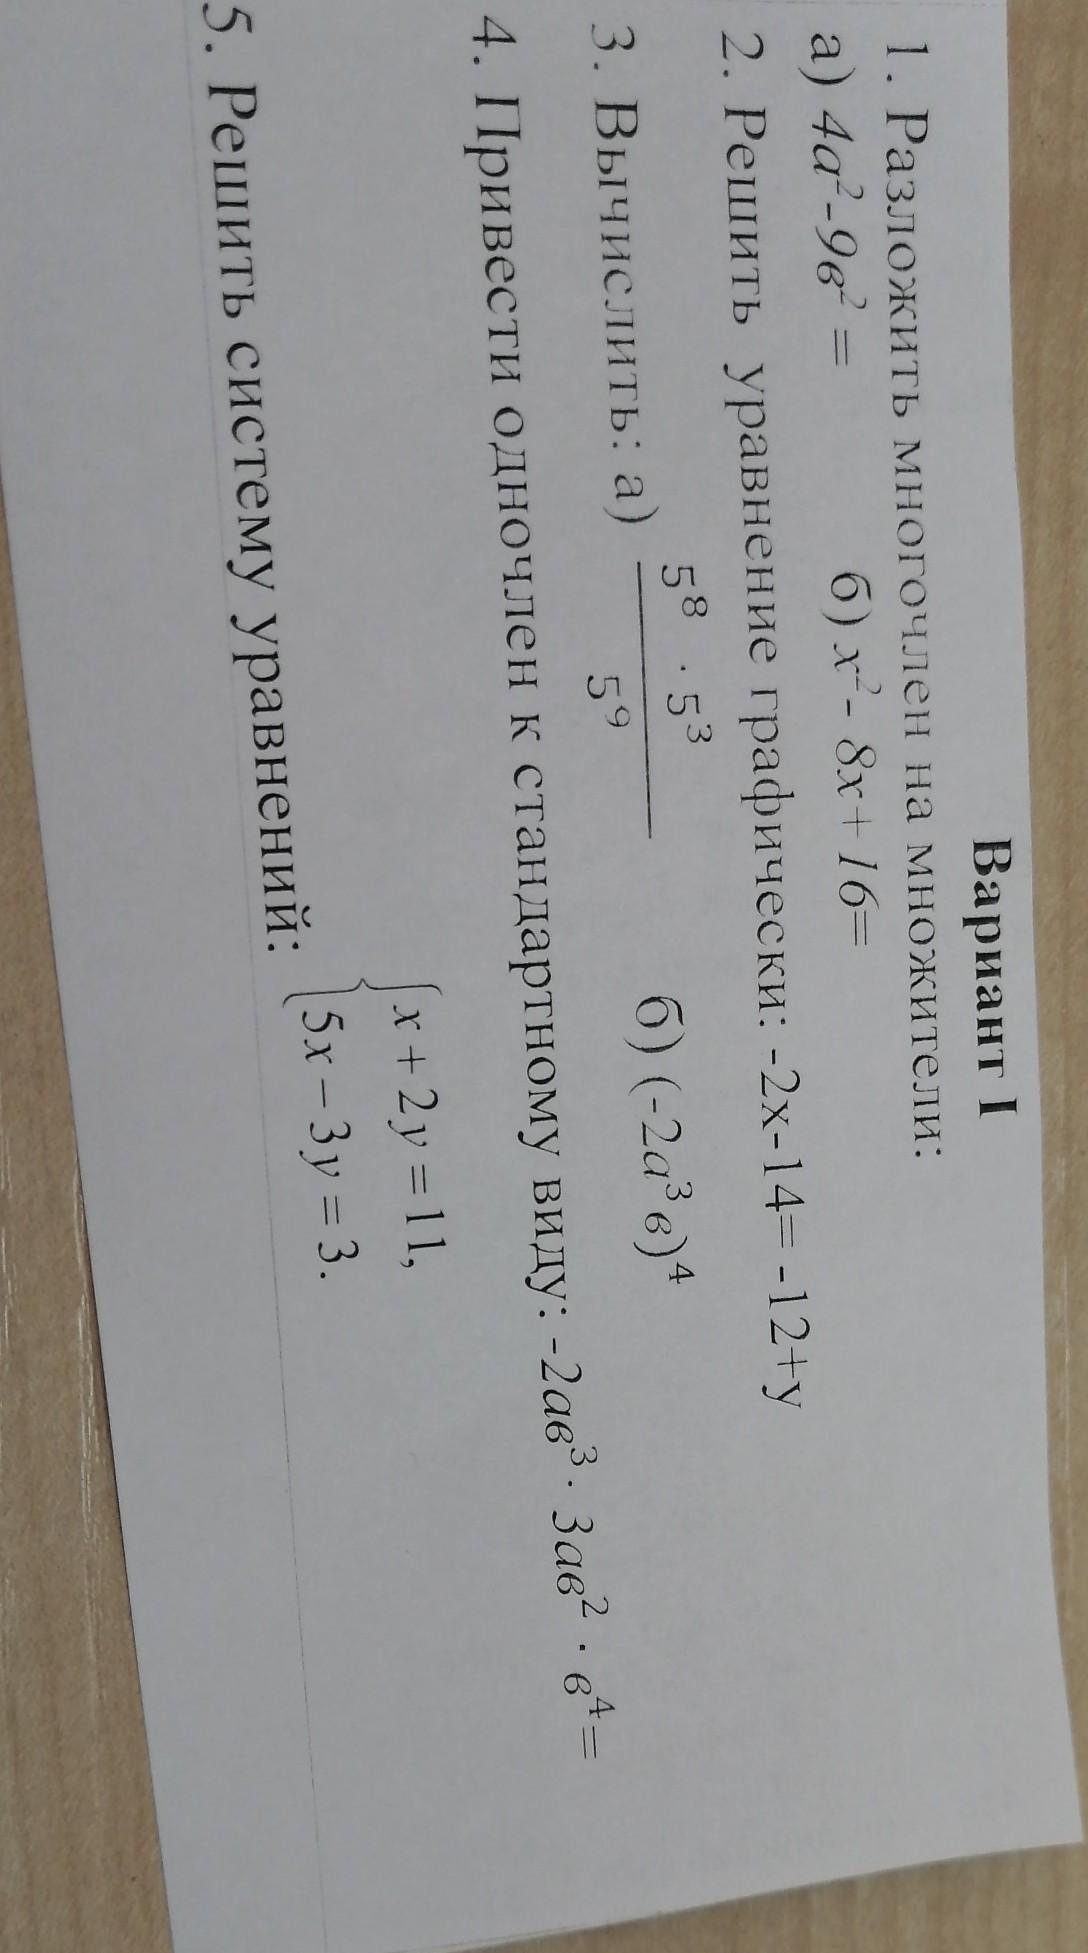 Вариант I
1. Разложить многочлен на множители:
а) 4а²-9в² = б) х²- 8х+16=
2. Решить уравнение графически: -2х-14= -12+у
3. Вычислить: а) 5⁸ · 5³ / 5⁹ б) (-2а³в)⁴
4. Привести одночлен к стандартному виду: -2ав³· 3ав² · в⁴=
5. Решить систему уравнений: { x + 2y = 11,
5x − 3y = 3.